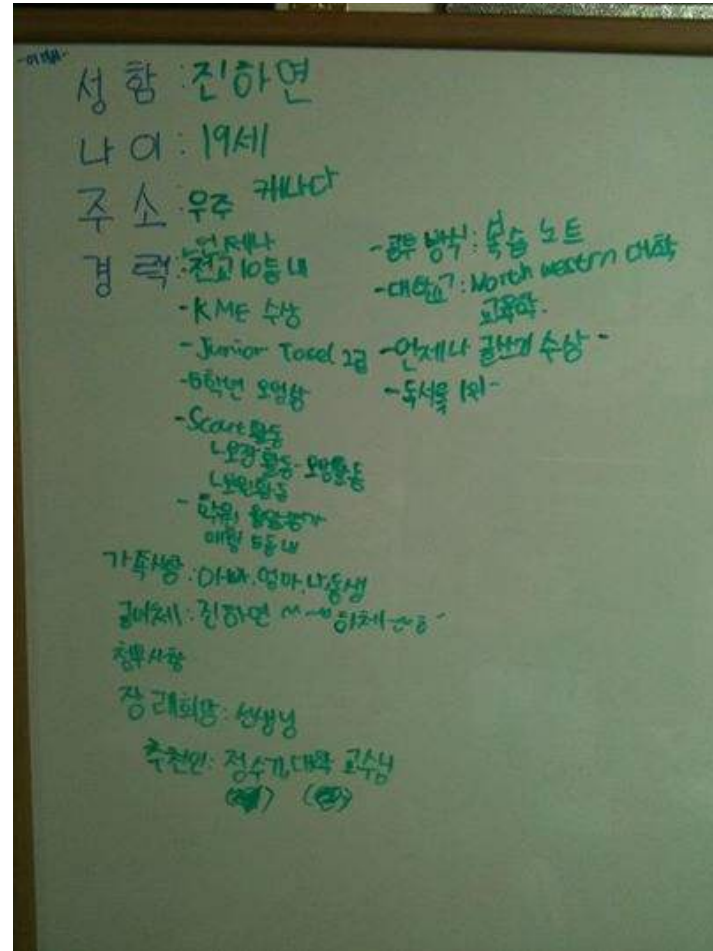 성 함 : 진하연
나 이 : 19세
주 소 : 우주 캐나다
언제나
경 력 : 전교 10등 내
- KME 수상
- Junior Tosel 2급
- 6학년 모범상
- Scout 활동
- 학원 월말평가
매월 5등 내
- 공부 방식 : 복습 노트
- 대학교 : North western 대학
교육학.
- 언제나 글쓰기 수상 -
- 독서율 1위 -
가족사항 : 아빠, 엄마, 나, 동생
글씨체 : 진하연
첨부사항
장래희망 : 선생님
추천인 : 정수기, 대학 교수님